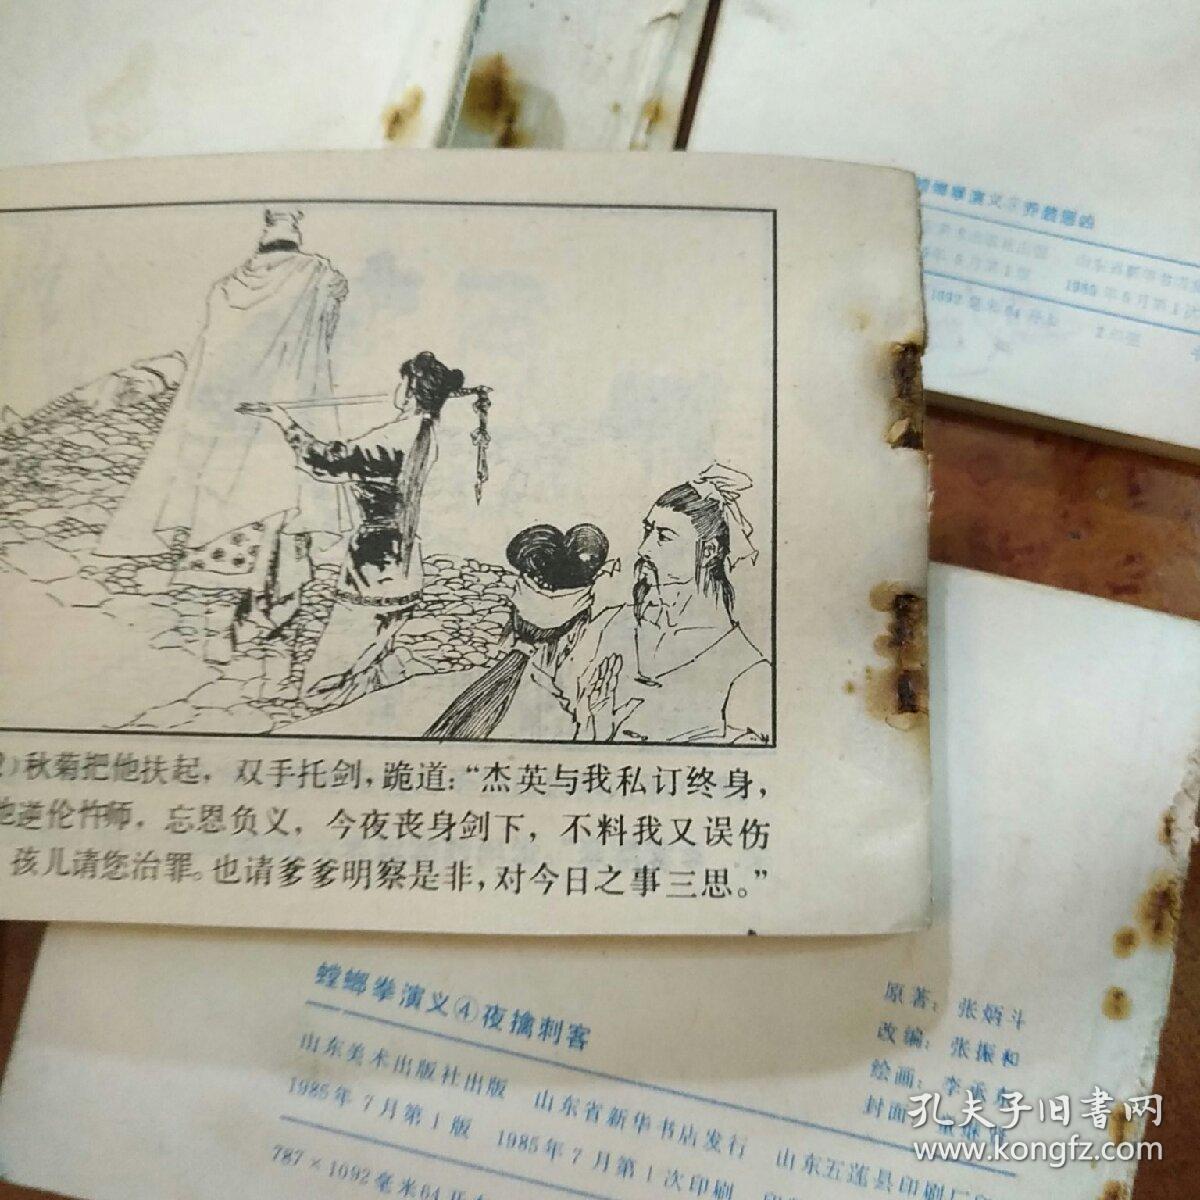 螳螂拳演义
1985年6月第1次
秋菊把他扶起，双手托剑，跪道：“杰英与我私订终身，
逆伦忤师，忘恩负义，今夜丧身剑下，不料我又误伤
孩儿请您治罪。也请爹爹明察是非，对今日之事三思。”
螳螂拳演义④夜擒刺客
原著：张炳斗
改编：张振和
绘画：李承
封面
山东美术出版社出版 山东省新华书店发行 山东五莲县印刷厂
1985年7月第1版 1985年7月第1次印刷
787×1092毫米64开
孔夫子旧书网
www.kongfz.com